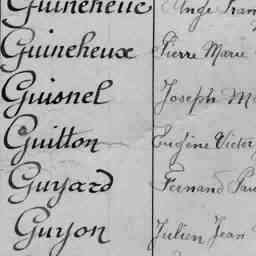 Guineheuc Ange
Guineheux Pierre Marie
Guisnel Joseph
Guitton Eugène Victor
Guyard Fernand
Guyon Julien Jean